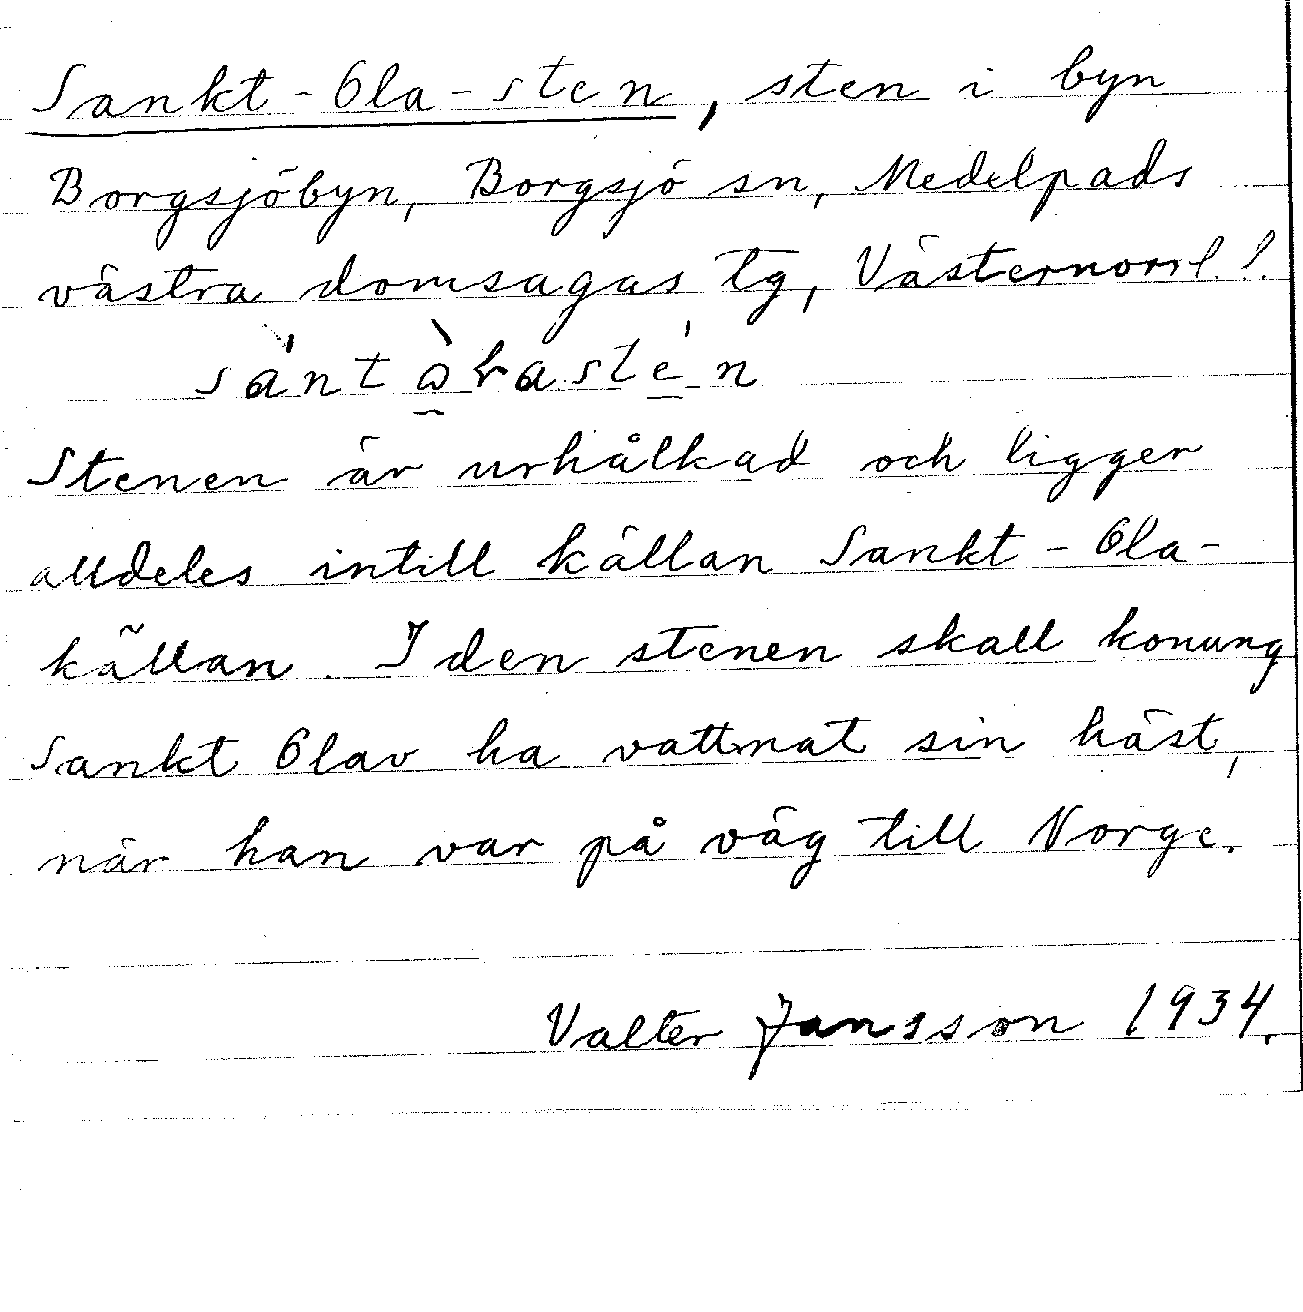 Sankt-Ola-sten, sten i byn
Borgsjöbyn, Borgsjö sn, Medelpads
västra domsagas tg, Västernorrl. l.
Stenen är urhålkad och ligger
alldeles intill källan Sankt-Ola-
källan. I den stenen skall konung
Sankt Olav ha vattnat sin häst,
när han var på väg till Norge.
Valter Jansson 1934.